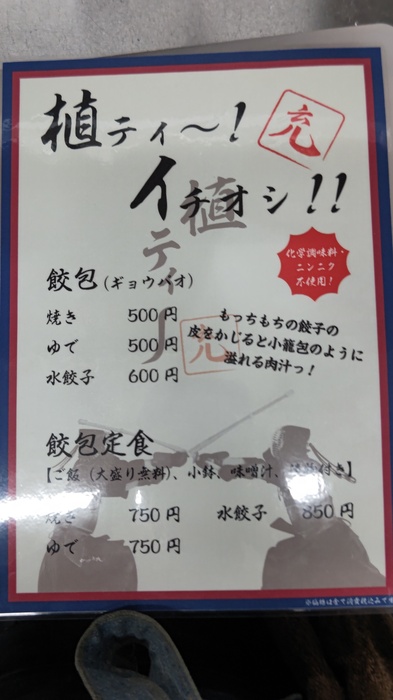 植ティ～!
充
イチオシ!!
植ティ～
化学調味料・
ニンニク
不使用!
餃包(ギョウパオ)
焼き 500円
ゆで 500円
水餃子 600円
充
もっちもちの餃子の
皮をかじると小籠包のように
溢れる肉汁っ!
餃包定食
【ご飯(大盛り無料)、小鉢、味噌汁、付き】
焼き 750円 水餃子 850円
ゆで 750円